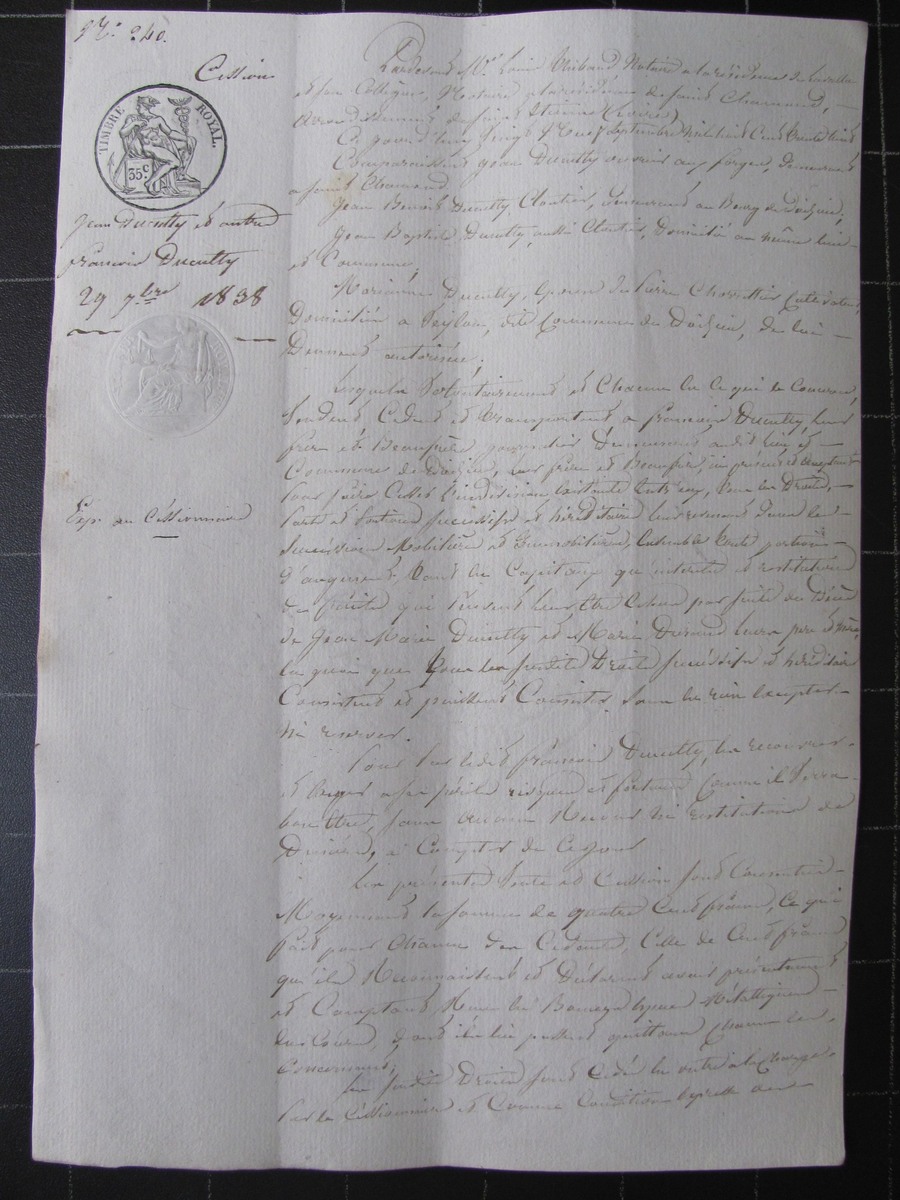 N.° 240.
Cession
TIMBRE ROYAL.
35.c
Jean Ducully et autre
françois Ducully
29 7bre 1838
Exp. au Cessionnaire
Pardevant Me. Louis Thibaud, Notaire a la résidence de
et son Collègue, Notaire a la résidence de Saint Chamond,
Arrondissement de Saint Etienne (Loire)
Ce jourd'hui Vingt Neuf Septembre Mil huit Cent trente huit
Comparaissent Jean Ducully ouvrier aux forges, demeurant
a Saint Chamond
Jean Benoit Ducully, Cloutier, demeurant au Bourg de
Jean Baptiste Ducully, aussi Cloutier, Domicilié au même lieu
et Commune,
Marianne Ducully, épouse de Pierre Cultivateur,
Domiciliée a dite Commune de de lui
Dument autorisée.
Lesquels Volontairement et Chacun en Ce qui le Concerne,
Vendent Cedent et transportent a françois Ducully leur
frère et Beaufrère demeurant audit lieu et
Commune de leur frère et Beaufrère, ici présent et acceptant
Pour faire Cesser l'indivision Existante Entr'eux, tous les Droits,
Parts et Portions Successifs et héréditaires leur revenant Dans la
Succession Mobilière et Immobilière, Ensemble toute portion
D'augment tant en Capitaux qu'intérêts et restitution
de fruits qui Puisent leur être échus par suite du Décès
de Jean Marie Ducully et Marie Durand leurs père et mère,
En quoi que tous les susdits Droits Successifs et héréditaires
Consistent et puissent Consister Sans en rien Excepter
Ni reserver.
Pour par ledit françois Ducully, les recouvrer
et a ses périls risques et fortune Comme il Verra
bon être, Sans aucun Recours Ni restitution de
Deniers, a Compter de Ce jour
La présente Vente et Cession sont Consenties
Moyennant la somme de quatre Cent francs, Ce qui
fait pour Chacun des Cedants, Celle de Cent francs
qu'ils Reconnaissent et Déclarent avoir présentement
et Comptant Reçue En Bonnes Espèces Métalliques
du Cours, dont ils lui passent quittance Chacun les
Concernant,
Les susdits Droits sont Cedés En outre a la Charge
Par le Cessionnaire et Comme Condition Expresse des